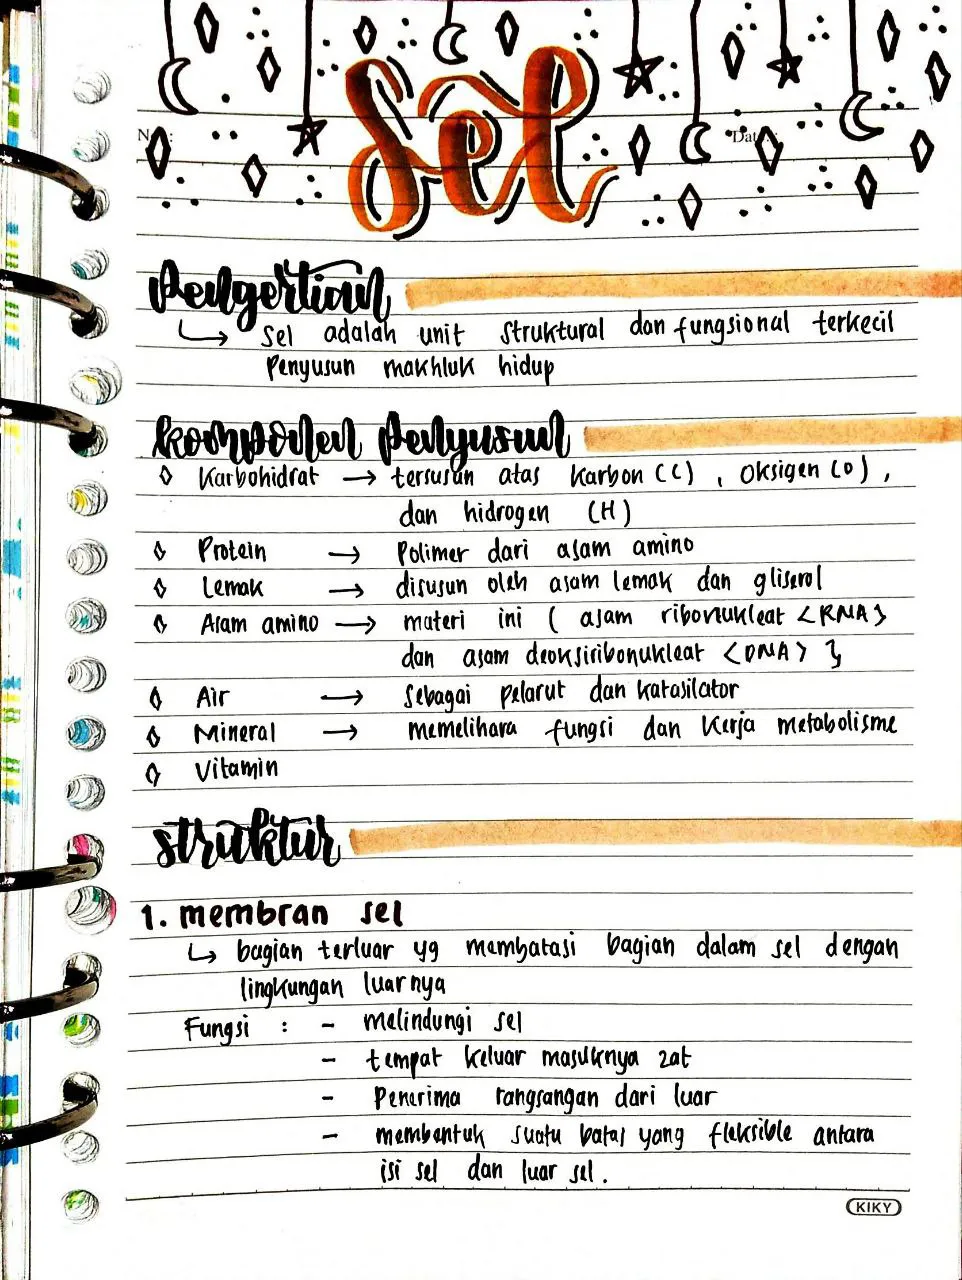 Sel
No :
Date :
Pengertian
↳ Sel adalah unit struktural dan fungsional terkecil
Penyusun makhluk hidup
Komponen Penyusun
◊ Karbohidrat → tersusun atas Karbon (C) , Oksigen (O) ,
dan hidrogen (H)
◊ Protein → Polimer dari asam amino
◊ Lemak → disusun oleh asam lemak dan gliserol
◊ Asam amino → materi ini ( asam ribonukleat <RNA>
dan asam deoksiribonukleat <DNA> }
◊ Air → sebagai pelarut dan katasilator
◊ Mineral → memelihara fungsi dan kerja metabolisme
◊ Vitamin
struktur
1. membran sel
↳ bagian terluar yg membatasi bagian dalam sel dengan
lingkungan luarnya
Fungsi : - melindungi sel
- tempat keluar masuknya zat
- Penerima rangsangan dari luar
- membentuk suatu batas yang fleksible antara
isi sel dan luar sel.
KIKY